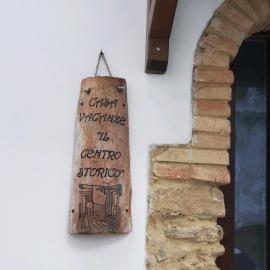 CASA
VACANZE
"IL
CENTRO
STORICO"